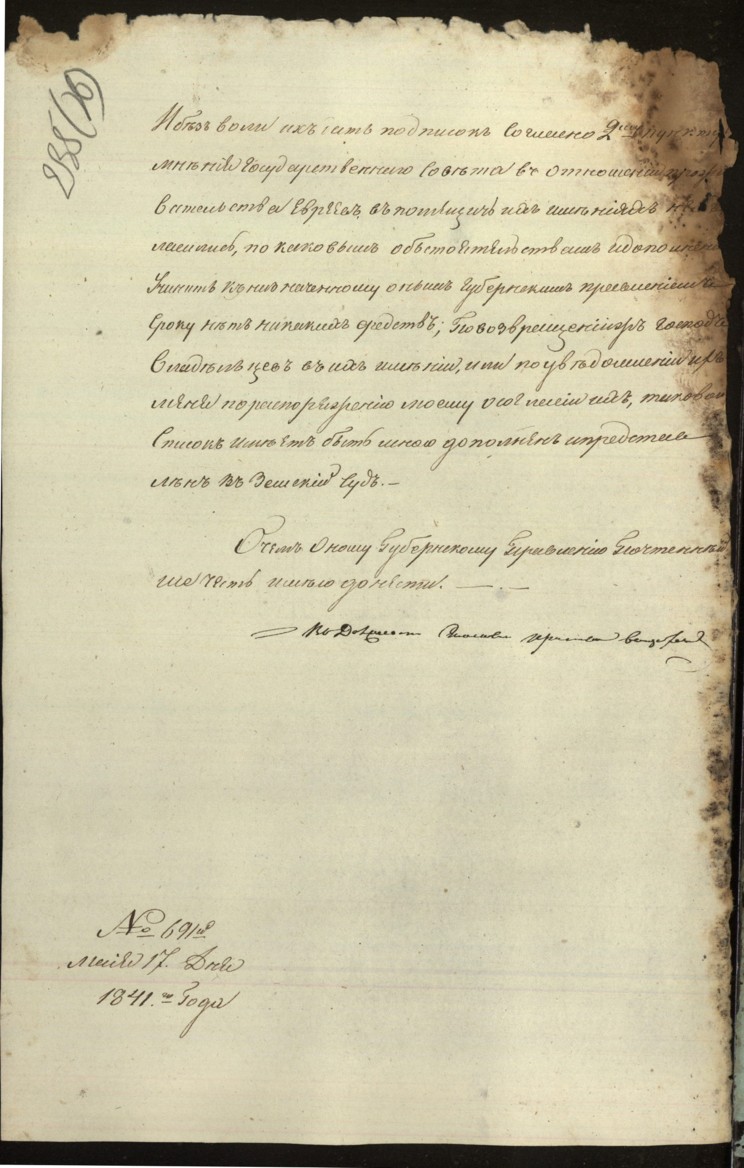 238(76)
И безъ воли ихъ дать подписокъ согласно 2му пункту
мнѣнія Государственнаго Совѣта въ отношеніи
вательства Евреевъ въ помѣщичьихъ имѣніяхъ не
ласились, по каковымъ обстоятельствамъ и дополненія
учинить къ назначенному онымъ Губернскимъ правленіемъ
сроку нѣтъ никакихъ средствъ; По возвращеніи Господъ
Владѣльцевъ въ ихъ имѣніи, или по увѣдомленіи
меня по распоряженію моему о согласіи ихъ, таковой
списокъ имѣетъ быть мною дополненъ и представ
ленъ въ Земскій Судъ.—
О чемъ Оному Губернскому Правленію Почтеннѣй
ше честь имѣю донести.
№ 691й
маія 17. Дня
1841.го Года